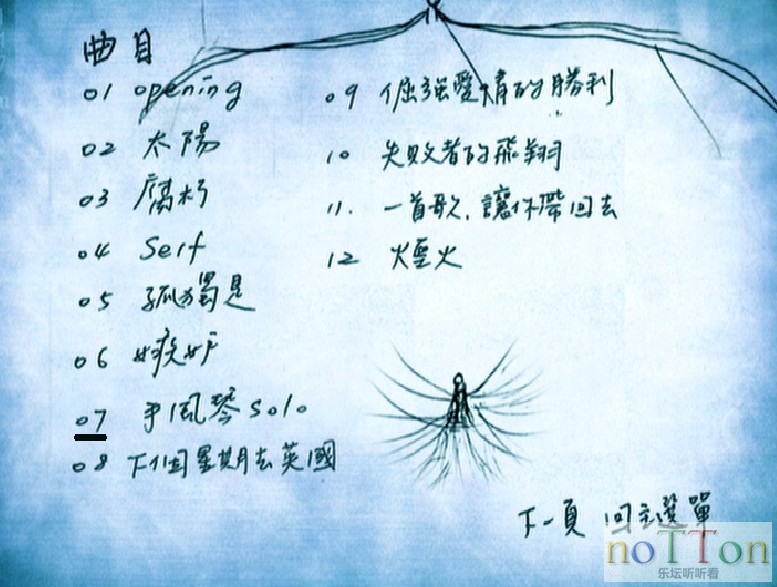 曲目
01 opening
02 太陽
03 腐朽
04 Self
05 孤獨是
06 嫉妒
07 手風琴 solo
08 下個星期去英國
09 倔強愛情的勝利
10 失敗者的飛翔
11. 一首歌，讓你帶回去
12 煙火
下一頁 回主選單
noTTon
乐坛听听看